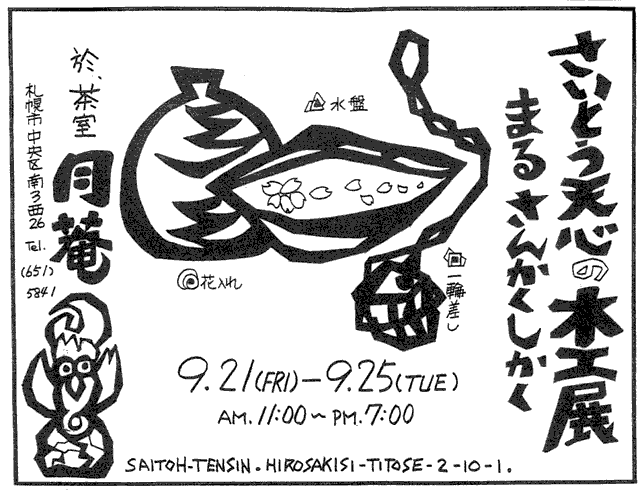 さいとう天心の木工展
まるさんかくしかく
水盤
花入れ
一輪差し
於、茶室
月菴
札幌市中央区南3西26
Tel.
(651)
5841
9.21(FRI)-9.25(TUE)
AM.11:00~PM.7:00
SAITOH-TENSIN.HIROSAKISI-TITOSE-2-10-1.